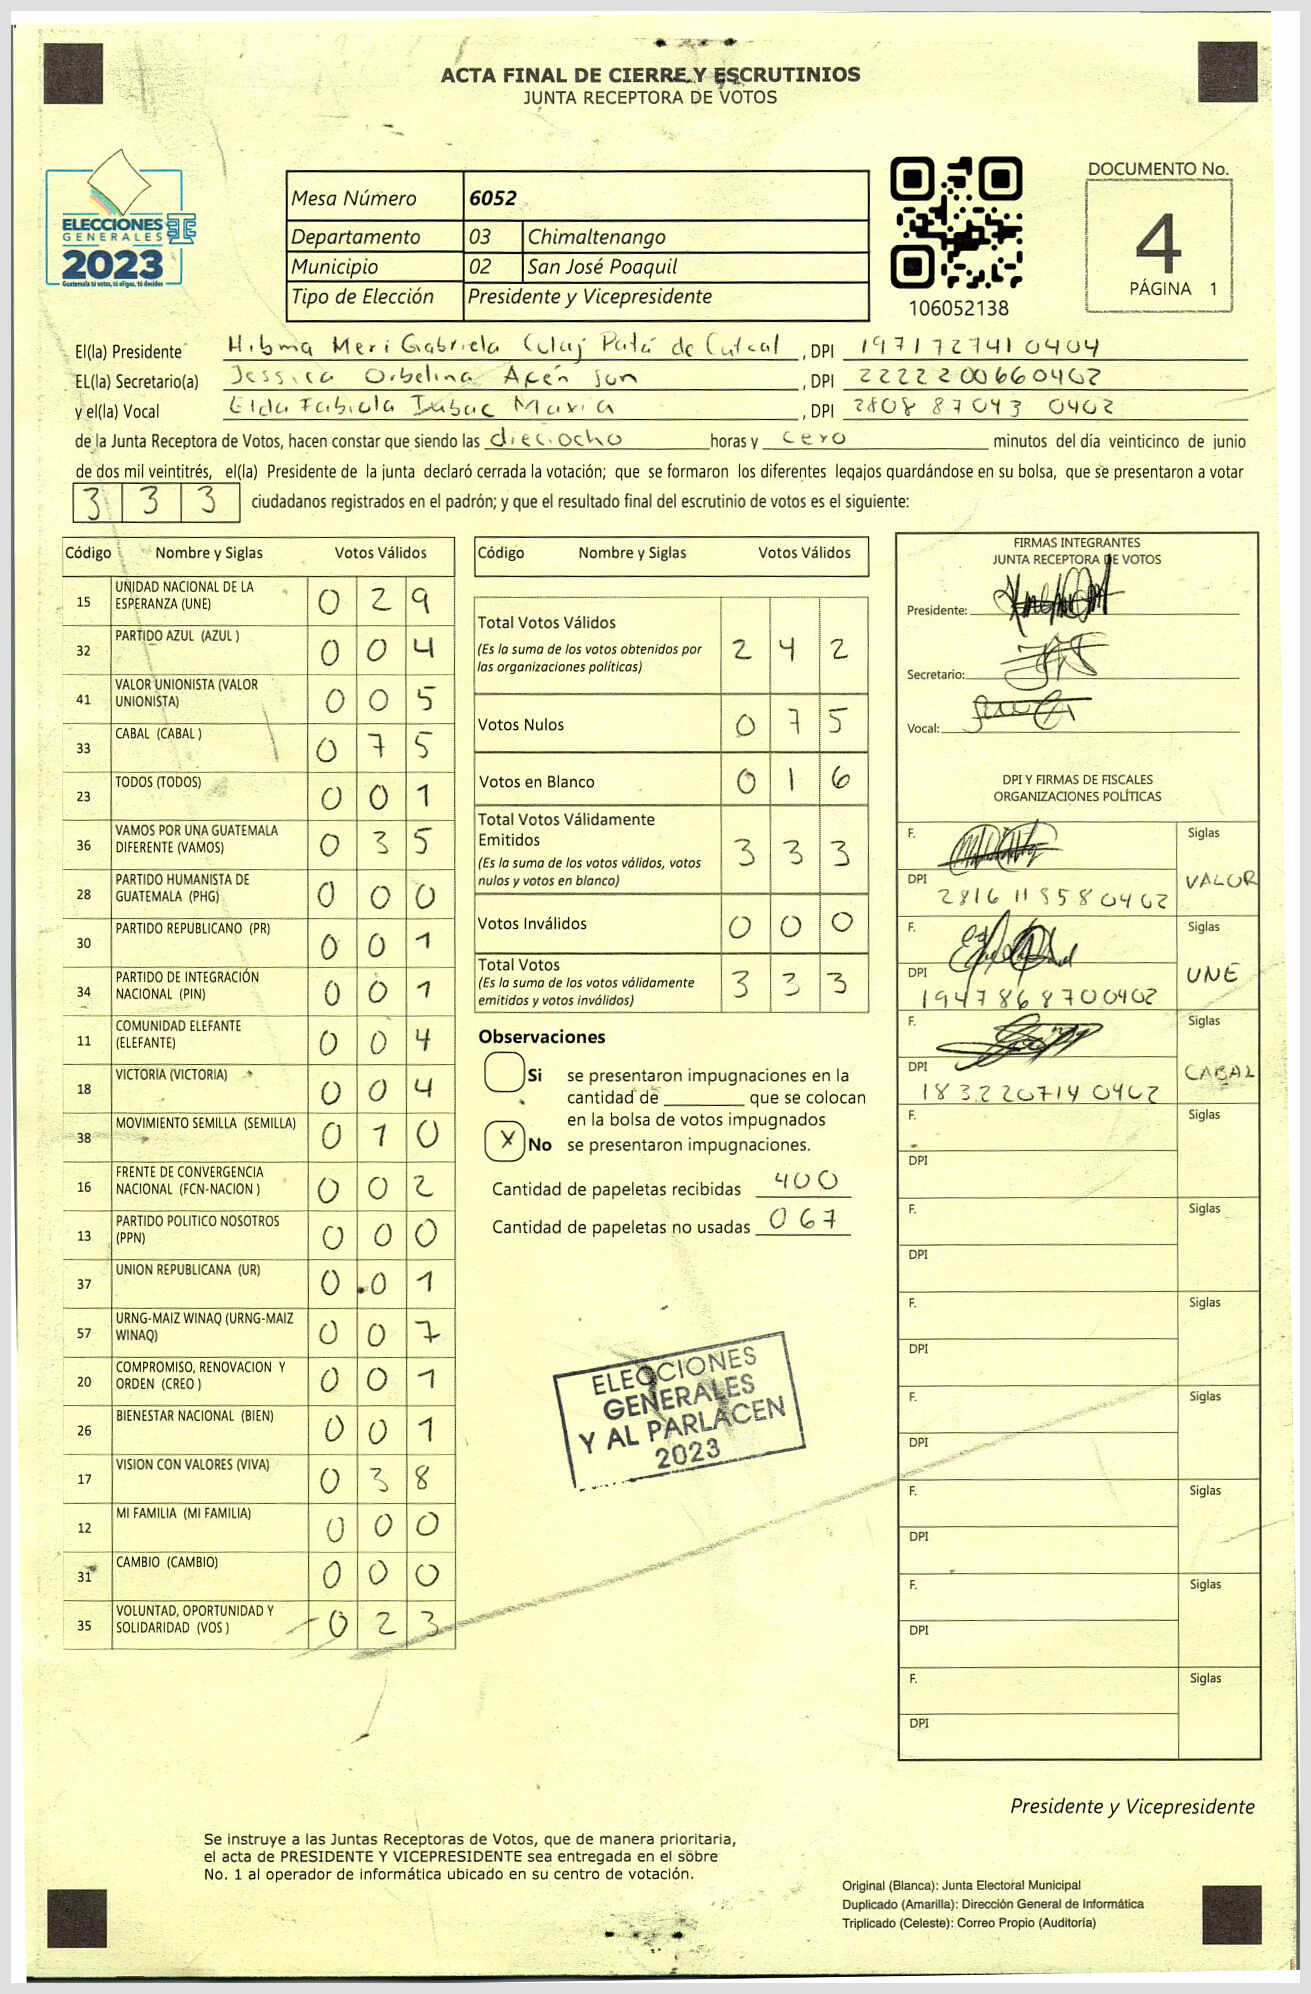 ACTA FINAL DE CIERRE Y ESCRUTINIOS
JUNTA RECEPTORA DE VOTOS
ELECCIONES
GENERALES
2023
Guatemala tú votas, tú eliges, tú decides
Mesa Número 6052
Departamento 03 Chimaltenango
Municipio 02 San José Poaquil
Tipo de Elección Presidente y Vicepresidente
106052138
DOCUMENTO No.
4
PÁGINA 1
El(la) Presidente Meri Gabriela de , DPI 1971727410404
EL(la) Secretario(a) Jessica Orbelina , DPI 2222200660402
y el(la) Vocal Elda Fabiola , DPI 2808 87043 0402
de la Junta Receptora de Votos, hacen constar que siendo las dieciocho horas y cero minutos del día veinticinco de junio
de dos mil veintitrés, el(la) Presidente de la junta declaró cerrada la votación; que se formaron los diferentes legajos guardándose en su bolsa, que se presentaron a votar
3 3 3 ciudadanos registrados en el padrón; y que el resultado final del escrutinio de votos es el siguiente:
Código Nombre y Siglas Votos Válidos
15 UNIDAD NACIONAL DE LA
ESPERANZA (UNE) 0 2 9
32 PARTIDO AZUL (AZUL ) 0 0 4
41 VALOR UNIONISTA (VALOR
UNIONISTA) 0 0 5
33 CABAL (CABAL ) 0 7 5
23 TODOS (TODOS) 0 0 1
36 VAMOS POR UNA GUATEMALA
DIFERENTE (VAMOS) 0 3 5
28 PARTIDO HUMANISTA DE
GUATEMALA (PHG) 0 0 0
30 PARTIDO REPUBLICANO (PR) 0 0 1
34 PARTIDO DE INTEGRACIÓN
NACIONAL (PIN) 0 0 1
11 COMUNIDAD ELEFANTE
(ELEFANTE) 0 0 4
18 VICTORIA (VICTORIA) 0 0 4
38 MOVIMIENTO SEMILLA (SEMILLA) 0 1 0
16 FRENTE DE CONVERGENCIA
NACIONAL (FCN-NACION ) 0 0 2
13 PARTIDO POLITICO NOSOTROS
(PPN) 0 0 0
37 UNION REPUBLICANA (UR) 0 0 1
57 URNG-MAIZ WINAQ (URNG-MAIZ
WINAQ) 0 0 7
20 COMPROMISO, RENOVACION Y
ORDEN (CREO ) 0 0 1
26 BIENESTAR NACIONAL (BIEN) 0 0 1
17 VISION CON VALORES (VIVA) 0 3 8
12 MI FAMILIA (MI FAMILIA) 0 0 0
31 CAMBIO (CAMBIO) 0 0 0
35 VOLUNTAD, OPORTUNIDAD Y
SOLIDARIDAD (VOS ) 0 2 3
Código Nombre y Siglas Votos Válidos
Total Votos Válidos
(Es la suma de los votos obtenidos por
las organizaciones políticas) 2 4 2
Votos Nulos 0 7 5
Votos en Blanco 0 1 6
Total Votos Válidamente
Emitidos
(Es la suma de los votos válidos, votos
nulos y votos en blanco) 3 3 3
Votos Inválidos 0 0 0
Total Votos
(Es la suma de los votos válidamente
emitidos y votos inválidos) 3 3 3
Observaciones
Si se presentaron impugnaciones en la
cantidad de ________ que se colocan
en la bolsa de votos impugnados
X No se presentaron impugnaciones.
Cantidad de papeletas recibidas 400
Cantidad de papeletas no usadas 067
ELECCIONES
GENERALES
Y AL PARLACEN
2023
FIRMAS INTEGRANTES
JUNTA RECEPTORA DE VOTOS
Presidente:
Secretario:
Vocal:
DPI Y FIRMAS DE FISCALES
ORGANIZACIONES POLÍTICAS
F. Siglas
VALOR
DPI
2816 11958 0402
F. Siglas
UNE
DPI
1947868700402
F. Siglas
CABAL
DPI
183220714 0402
F. Siglas
DPI
F. Siglas
DPI
F. Siglas
DPI
F. Siglas
DPI
F. Siglas
DPI
F. Siglas
DPI
F. Siglas
DPI
Presidente y Vicepresidente
Se instruye a las Juntas Receptoras de Votos, que de manera prioritaria,
el acta de PRESIDENTE Y VICEPRESIDENTE sea entregada en el sobre
No. 1 al operador de informática ubicado en su centro de votación.
Original (Blanca): Junta Electoral Municipal
Duplicado (Amarilla): Dirección General de Informática
Triplicado (Celeste): Correo Propio (Auditoría)